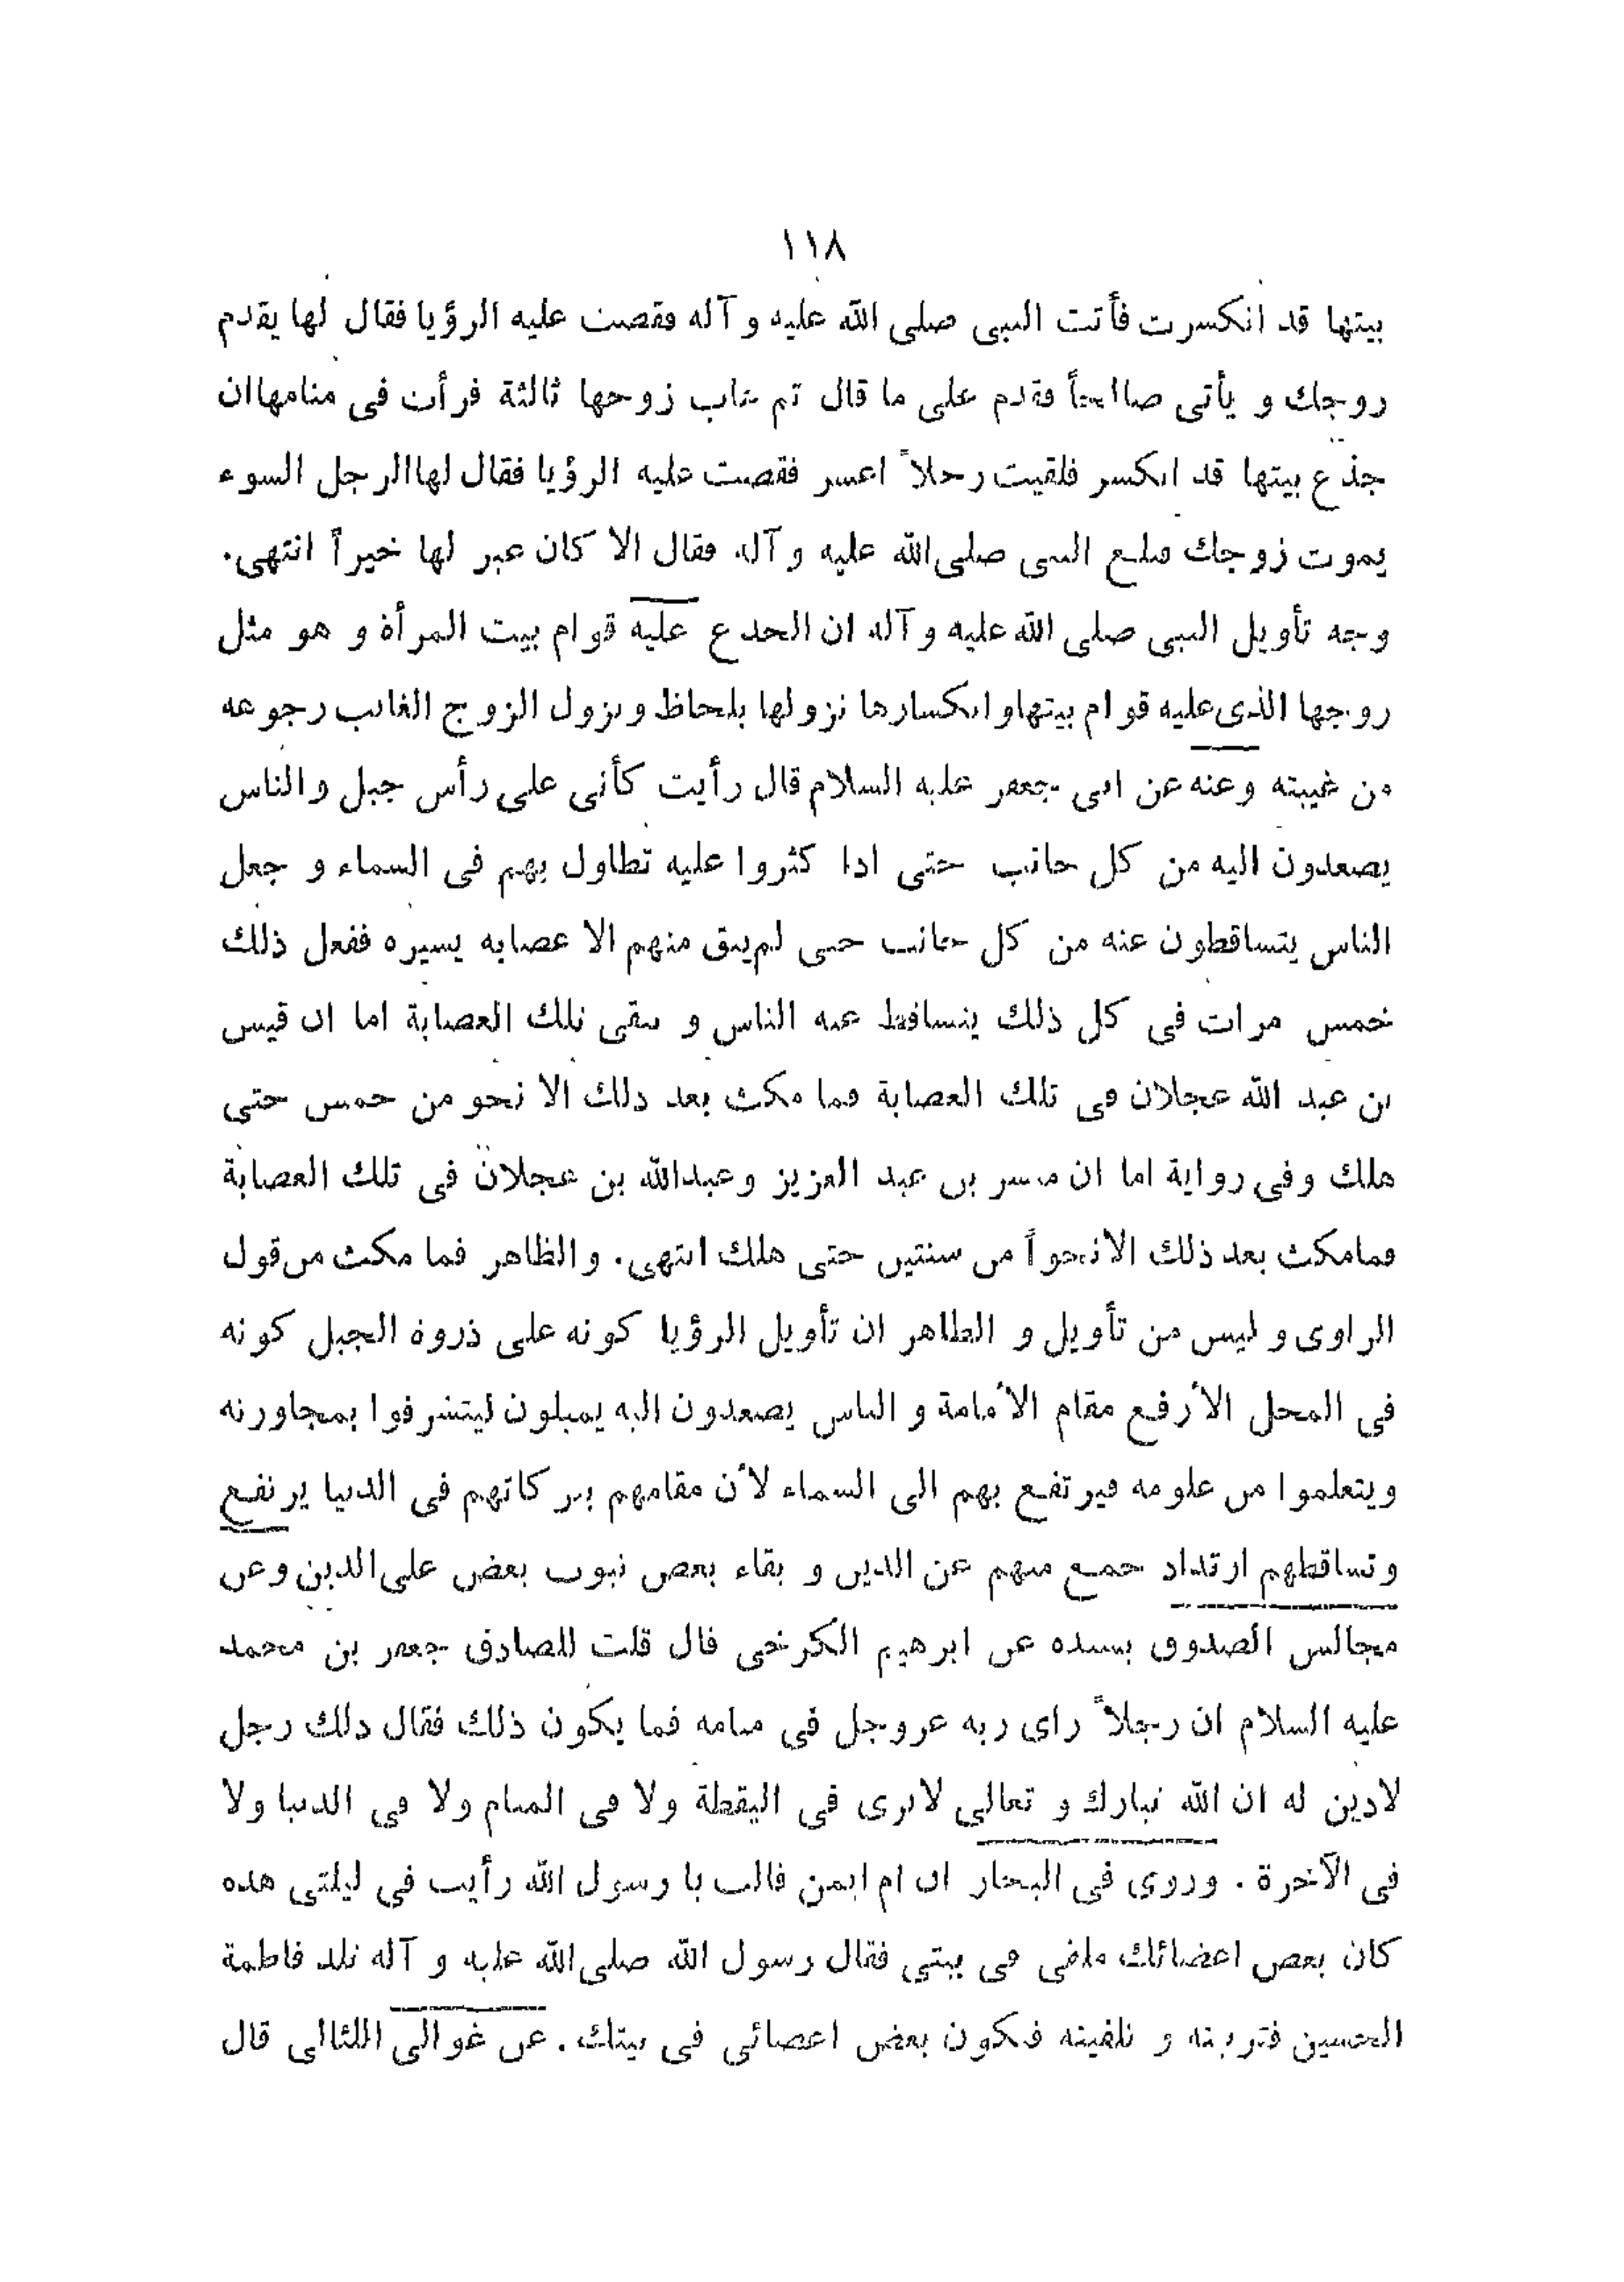 ١١٨
بيتها قد انكسرت فأتت النبى صلى الله عليه و آله فقصت عليه الرؤيا فقال لها يقدم
زوجك و يأتى صالحاً فقدم على ما قال ثم غاب زوجها ثالثة فرأت فى منامها ان
جذع بيتها قد انكسر فلقيت رجلاً اعسر فقصت عليه الرؤيا فقال لها الرجل السوء
يموت زوجك فبلغ النبى صلى الله عليه و آله فقال الا كان عبر لها خيراً انتهى.
وجه تأويل النبى صلى الله عليه و آله ان الجذع عليه قوام بيت المرأة و هو مثل
زوجها الذى عليه قوام بيتها و انكسارها نزولها بلحاظ و نزول الزوج الغائب رجوعه
من غيبته وعنه عن ابى جعفر عليه السلام قال رأيت كأنى على رأس جبل والناس
يصعدون اليه من كل جانب حتى اذا كثروا عليه تطاول بهم فى السماء و جعل
الناس يتساقطون عنه من كل جانب حتى لم يبق منهم الا عصابه يسيره ففعل ذلك
خمس مرات فى كل ذلك يتساقط عنه الناس و يبقى تلك العصابة اما ان قيس
بن عبد الله عجلان فى تلك العصابة فما مكث بعد ذلك الا نحو من خمس حتى
هلك وفى رواية اما ان ميسر بن عبد العزيز وعبدالله بن عجلان فى تلك العصابة
فمامكث بعد ذلك الا نحواً من سنتين حتى هلك انتهى. والظاهر فما مكث من قول
الراوى و ليس من تأويل و الظاهر ان تأويل الرؤيا كونه على ذروة الجبل كونه
فى المحل الأرفع مقام الأمامة و الناس يصعدون اليه يميلون ليتشرفوا بمجاورته
ويتعلموا من علومه فيرتفع بهم الى السماء لأن مقامهم ببركاتهم فى الدنيا يرتفع
وتساقطهم ارتداد جمع منهم عن الدين و بقاء بعض ثبوت بعض على الدين وعن
مجالس الصدوق بسنده عن ابرهيم الكرخى قال قلت للصادق جعفر بن محمد
عليه السلام ان رجلاً راى ربه عزوجل فى منامه فما يكون ذلك فقال ذلك رجل
لادين له ان الله تبارك و تعالى لايرى فى اليقظة ولا فى المنام ولا فى الدنيا ولا
فى الآخرة . وروى فى البحار ان ام ايمن قالت يا رسول الله رأيت في ليلتى هذه
كان بعض اعضائك ملقى فى بيتى فقال رسول الله صلى الله عليه و آله تلد فاطمة
الحسين فتربينه و تلفينه فيكون بعض اعضائى فى بيتك . عن غوالى اللئالى قال